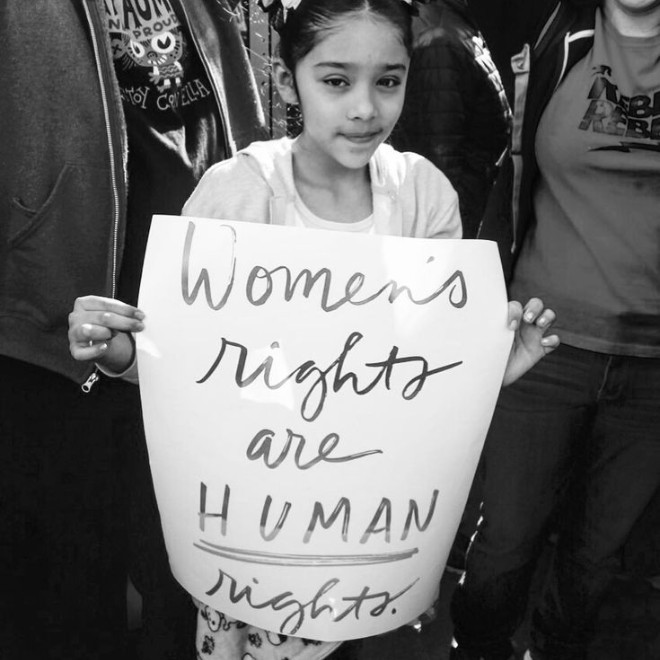 Women's
rights
are
HUMAN
rights.